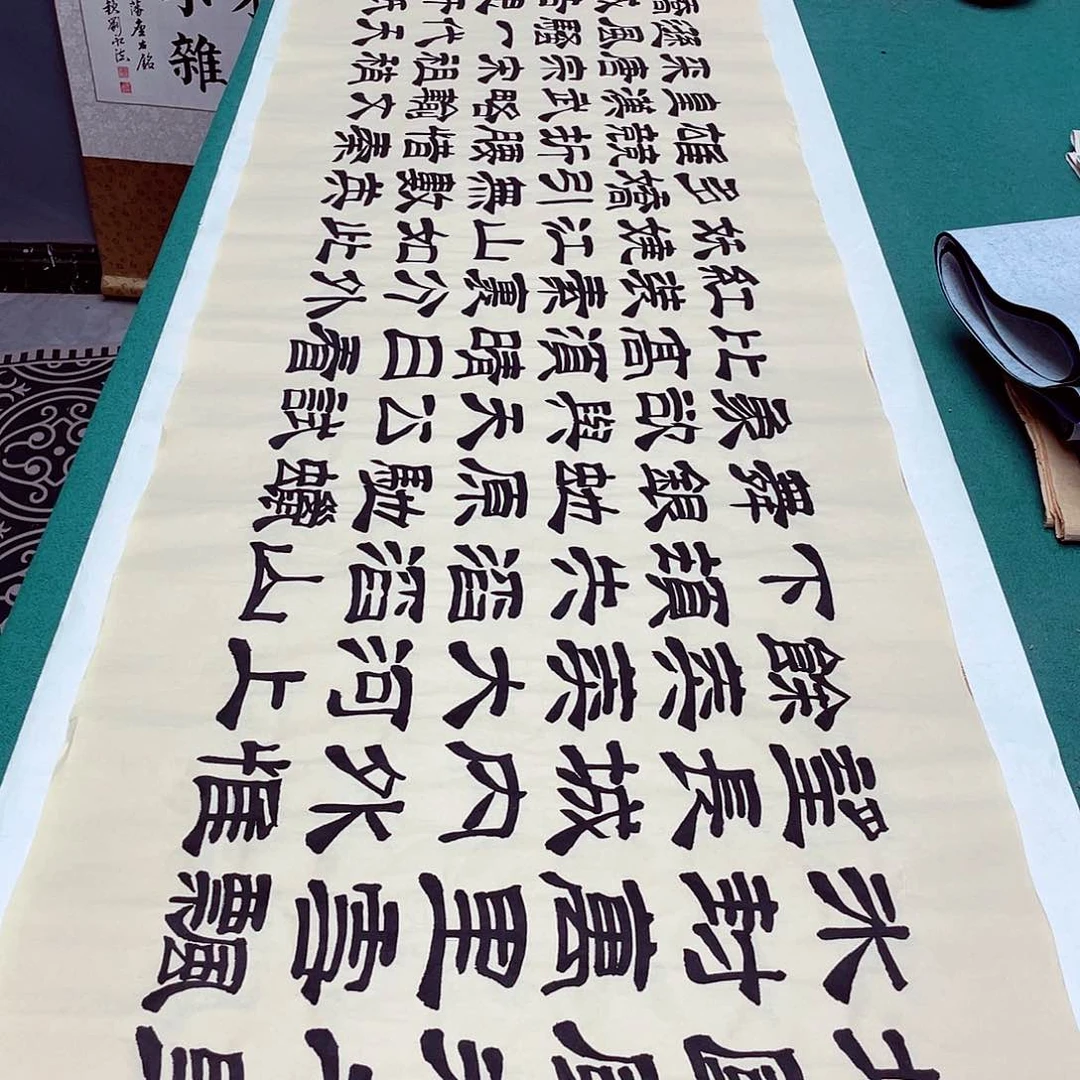 冰封萬里雪飄
望長城内外惟
餘莽莽大河上
下頓失滔滔山
舞銀蛇原馳蠟
象欲與天公試
比高須晴日看
紅裝素裹分外
妖嬈江山如此
多嬌引無數英
雄競折腰惜秦
皇漢武略輸文
采唐宗宋祖稍
遜風騷一代天
雜